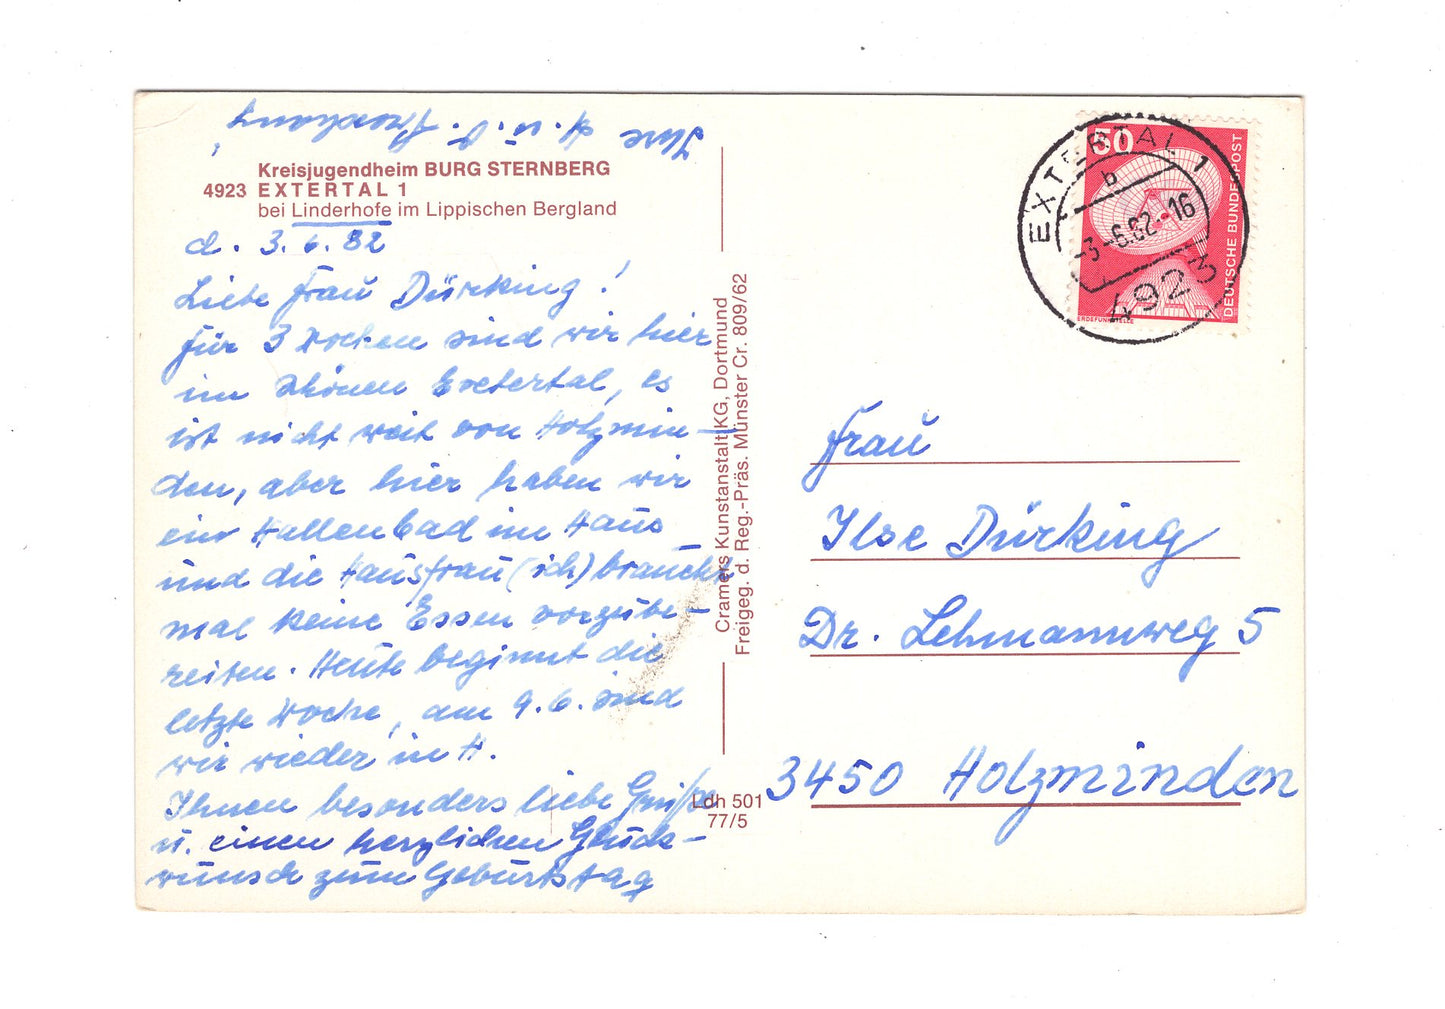 Ihre H. u. O.
Kreisjugendheim BURG STERNBERG
4923 EXTERTAL 1
bei Linderhofe im Lippischen Bergland
d. 3.6.82
Liebe Frau Dürking!
für 3 Wochen sind wir hier
im schönen Extertal, es
ist nicht weit von Holzmin-
den, aber hier haben wir
ein Hallenbad im Haus
und die Hausfrau (ich) braucht
mal keine Essen vorzube-
reiten. Heute beginnt die
letzte Woche, am 9.6. sind
wir wieder in H.
Ihnen besonders liebe Grüße
u. einen herzlichen Glück-
wunsch zum Geburtstag
Cramers Kunstanstalt KG, Dortmund
Freigeg. d. Reg.-Präs. Münster Cr. 809/62
Ldh 501
77/5
EXTERTAL 1
b
-3.-6.82-16
4923
DEUTSCHE BUNDESPOST
ERDEFUNKSTELLE
Frau
Ilse Dürking
Dr. Lehmannweg 5
3450 Holzminden